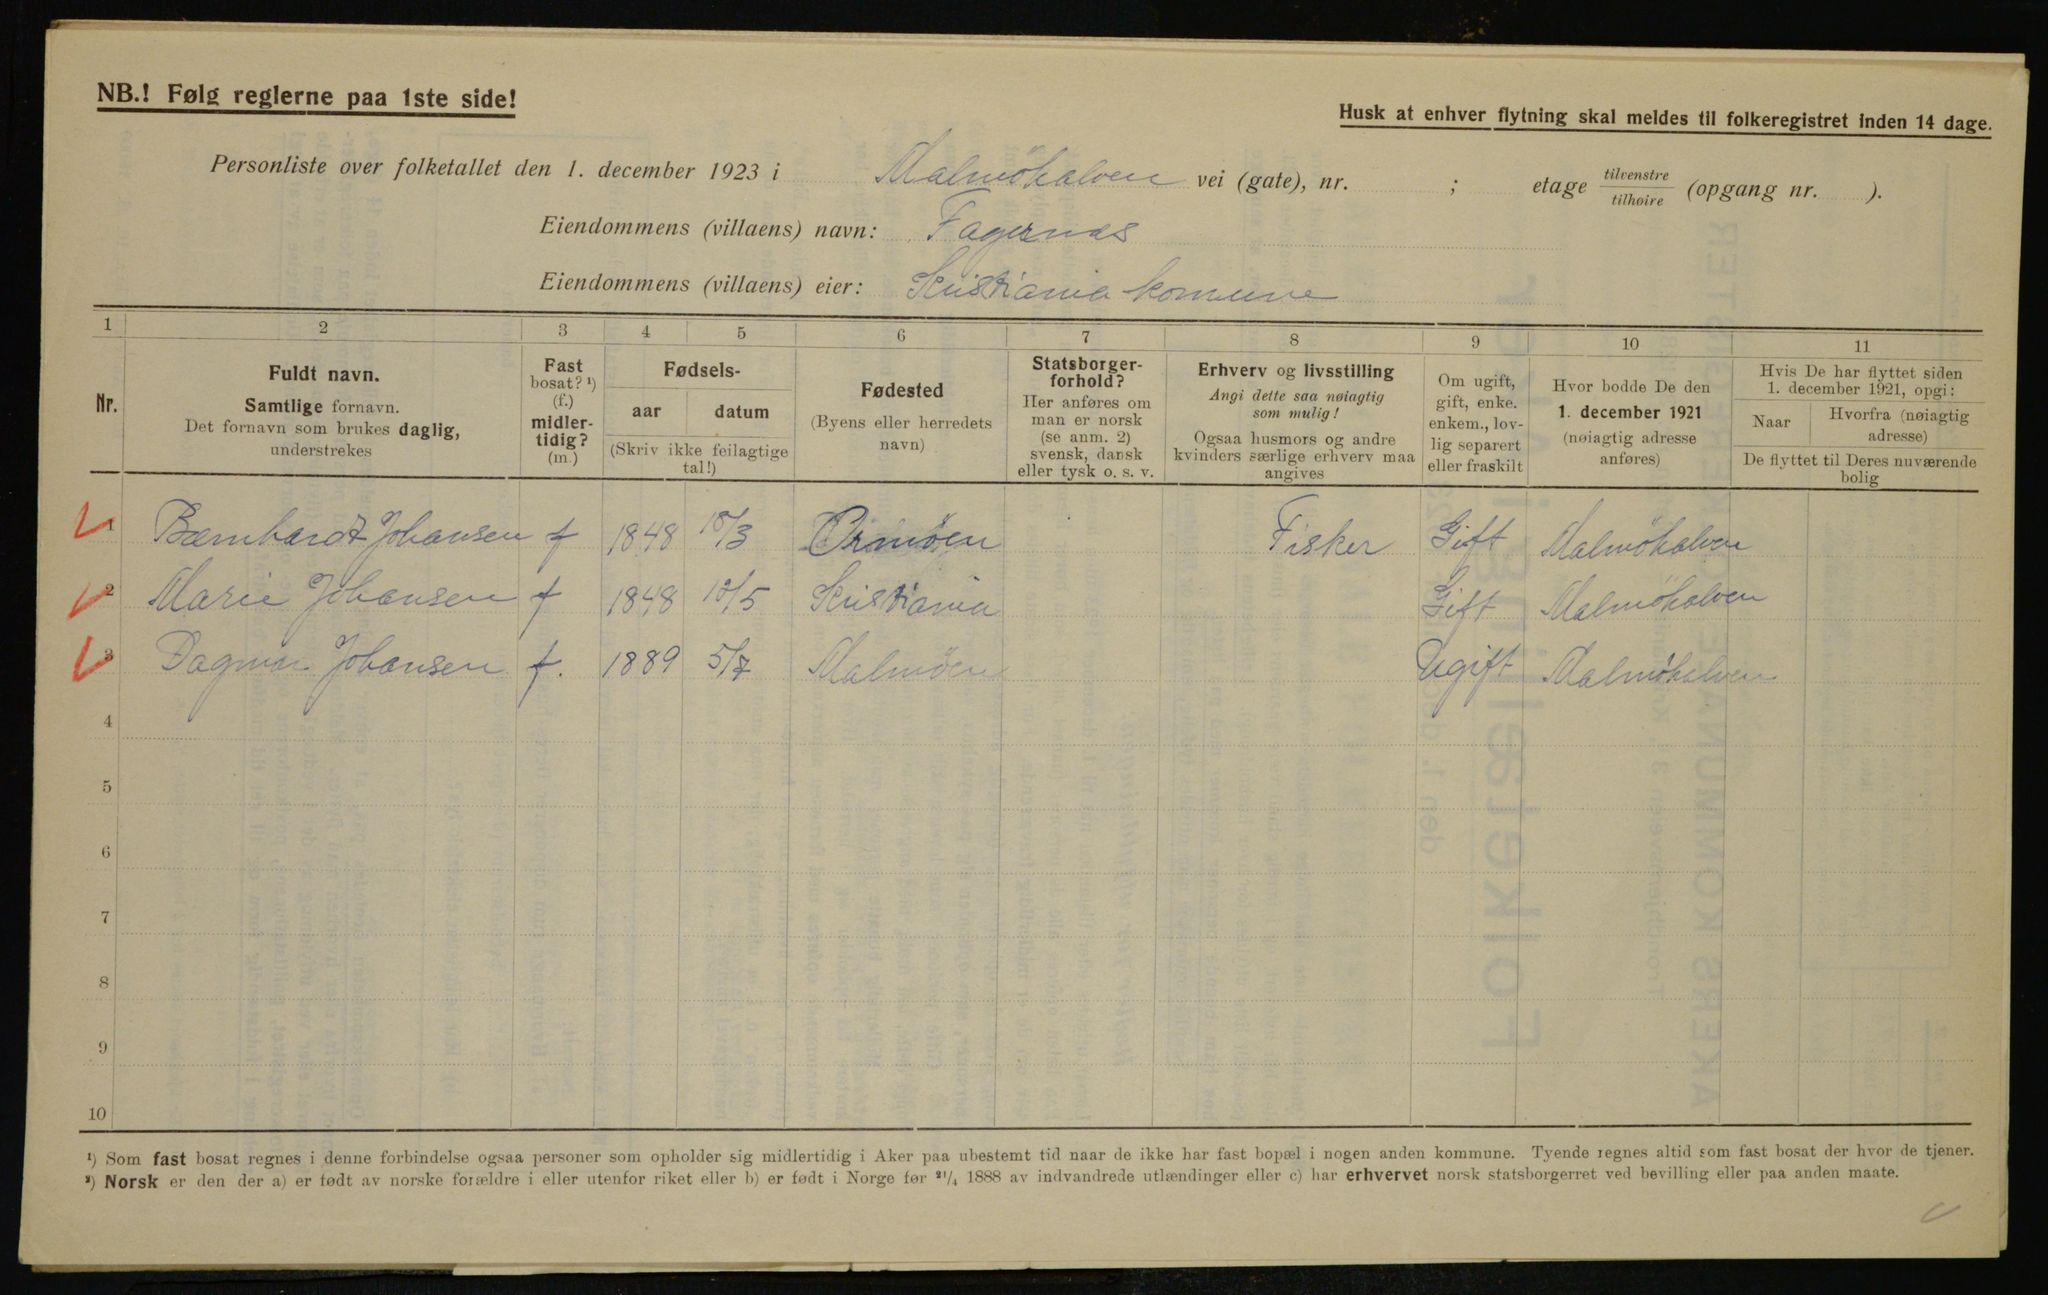 NB.! Følg reglerne paa 1ste side!
Husk at enhver flytning skal meldes til folkeregistret inden 14 dage.
Personliste over folketallet den 1. december 1923 i Malmöhalven vei (gate), nr. ; etage tilvenstre tilhøire (opgang nr. ).
Eiendommens (villaens) navn: Fagernæs
Eiendommens (villaens) eier: Kristiania komune
1 2 3 4 5 6 7 8 9 10 11
Nr.
Fuldt navn.
Samtlige fornavn.
Det fornavn som brukes daglig,
understrekes
Fast
bosat? ¹)
(f.)
midler-
tidig?
(m.)
Fødsels-
aar datum
(Skriv ikke feilagtige
tal!)
Fødested
(Byens eller herredets
navn)
Statsborger-
forhold?
Her anføres om
man er norsk
(se anm. 2)
svensk, dansk
eller tysk o. s. v.
Erhverv og livsstilling
Angi dette saa nøiagtig
som mulig!
Ogsaa husmors og andre
kvinders særlige erhverv maa
angives
Om ugift,
gift, enke.
enkem., lov-
lig separert
eller fraskilt
Hvor bodde De den
1. december 1921
(nøiagtig adresse
anføres)
Hvis De har flyttet siden
1. december 1921, opgi:
Naar Hvorfra (nøiagtig
adresse)
De flyttet til Deres nuværende
bolig
1 Bærnhardt Johansen f 1848 18/3 Ormöen Fisker Gift Malmöhalven
2 Marie Johansen f 1848 12/5 Kristiania Gift Malmöhalven
3 Dagmar Johansen f. 1889 5/7 Malmöen Ugift Malmöhalven
4
5
6
7
8
9
10
¹) Som fast bosat regnes i denne forbindelse ogsaa personer som opholder sig midlertidig i Aker paa ubestemt tid naar de ikke har fast bopæl i nogen anden kommune. Tyende regnes altid som fast bosat der hvor de tjener.
²) Norsk er den der a) er født av norske forældre i eller utenfor riket eller b) er født i Norge før ²¹/₄ 1888 av indvandrede utlændinger eller c) har erhvervet norsk statsborgerret ved bevilling eller paa anden maate.